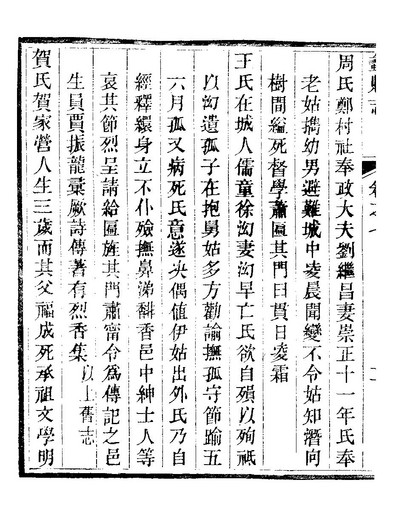 周氏鄭村社奉政大夫劉繼昌妻崇正十一年氏奉
老姑擕幼男避難城中凌晨聞變不令姑知潛向
樹間縊死督學蕭匾其門曰貫日凌霜
王氏在城人儒童徐洶妻洶早亡氏欲自殞以殉祇
以洶遺孤子在抱舅姑多方勸諭撫孤守節踰五
六月孤又病死氏意遂决偶值伊姑出外氏乃自
經釋繯身立不仆殮撫鼻涕斜香邑中紳士人等
哀其節烈呈請給匾旌其門蕭甯令為傳記之邑
生員賈振龍彚厥詩傳著有烈香集以上舊志
賀氏賀家營人生三歲而其父福成死承祖文學明